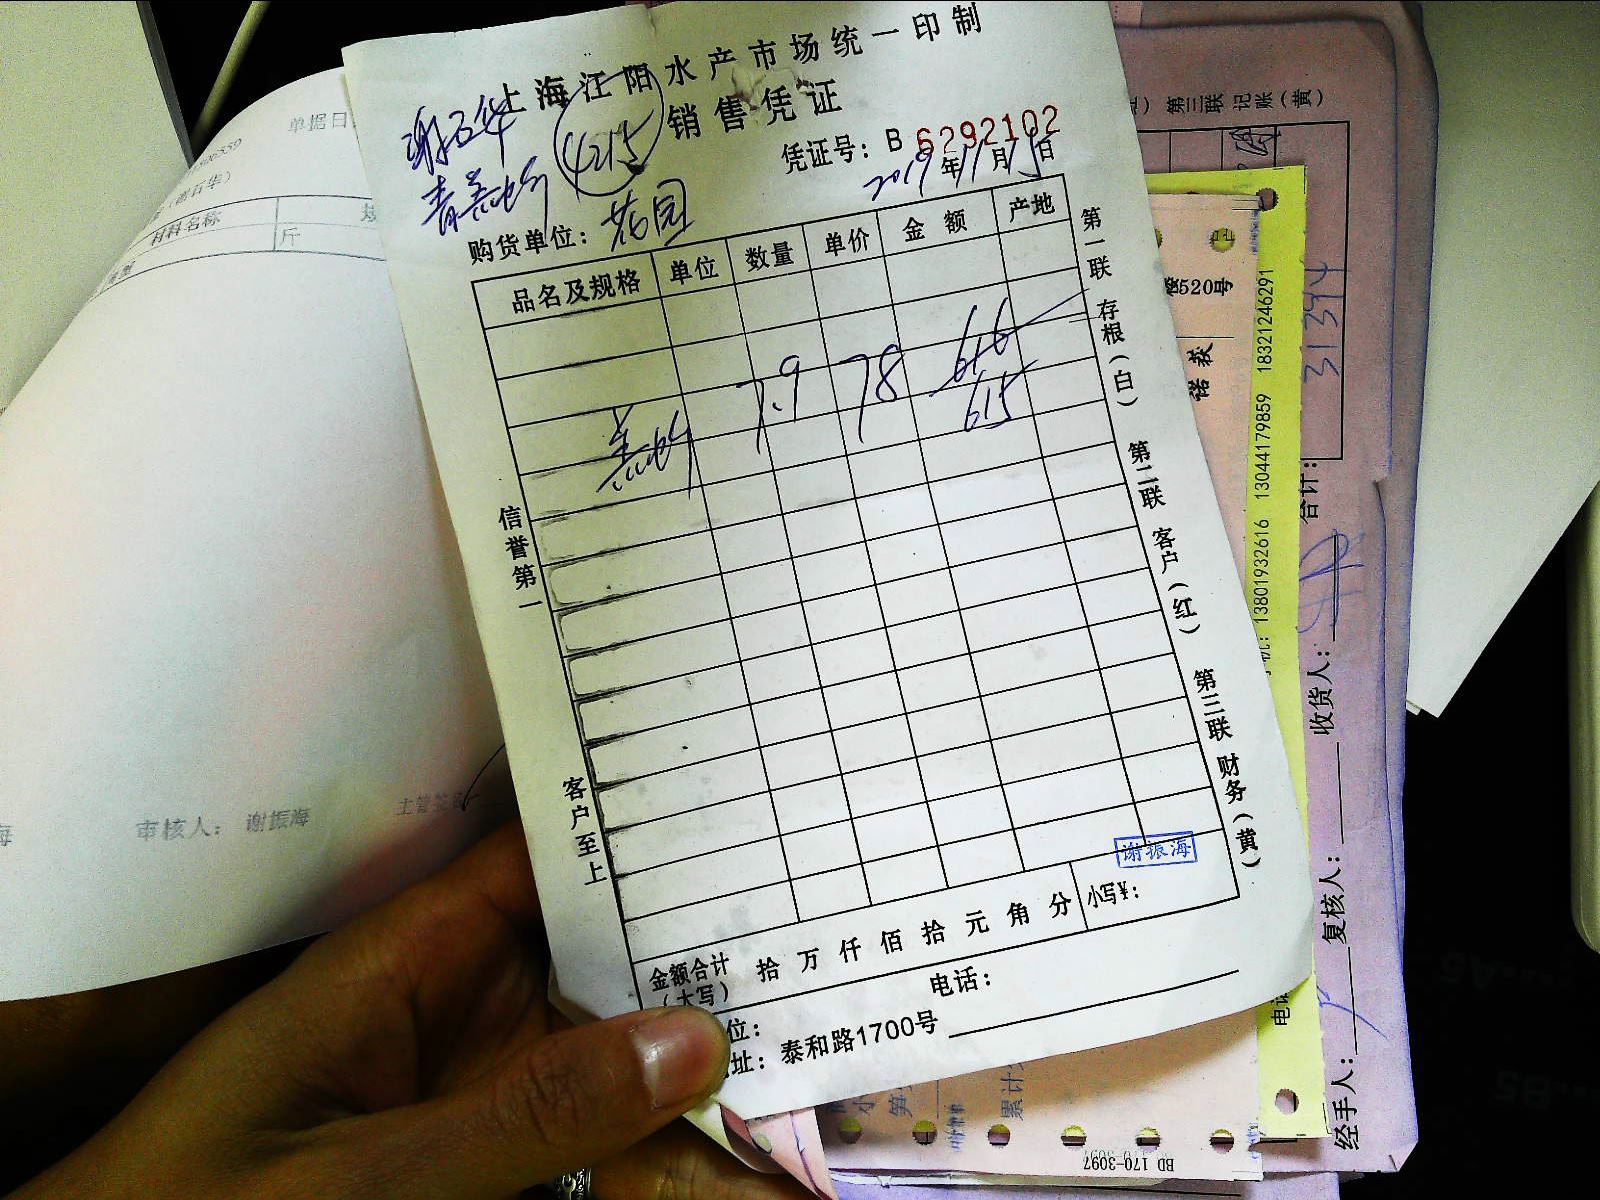 上海江阳水产市场统一印制
销售凭证
谢石华
4215
凭证号：B 6292102
2019年11月15日
购货单位：花园
品名及规格 单位 数量 单价 金额 产地
7.9 78 616
615
信誉第一
客户至上
第一联 存根（白） 第二联 客户（红） 第三联 财务（黄）
谢振海
金额合计（大写） 拾 万 仟 佰 拾 元 角 分 小写¥：
电话：
位：
址：泰和路1700号
单据日
（谢石华）
材料名称 规
斤
审核人： 谢振海
主管签
海
第三联 记账（黄）
31394
合计：
收货人：
复核人：
经手人：
楼520号
诺获
机：13801932616 13044179859 18321246291
电话
累计
BD 170-3097